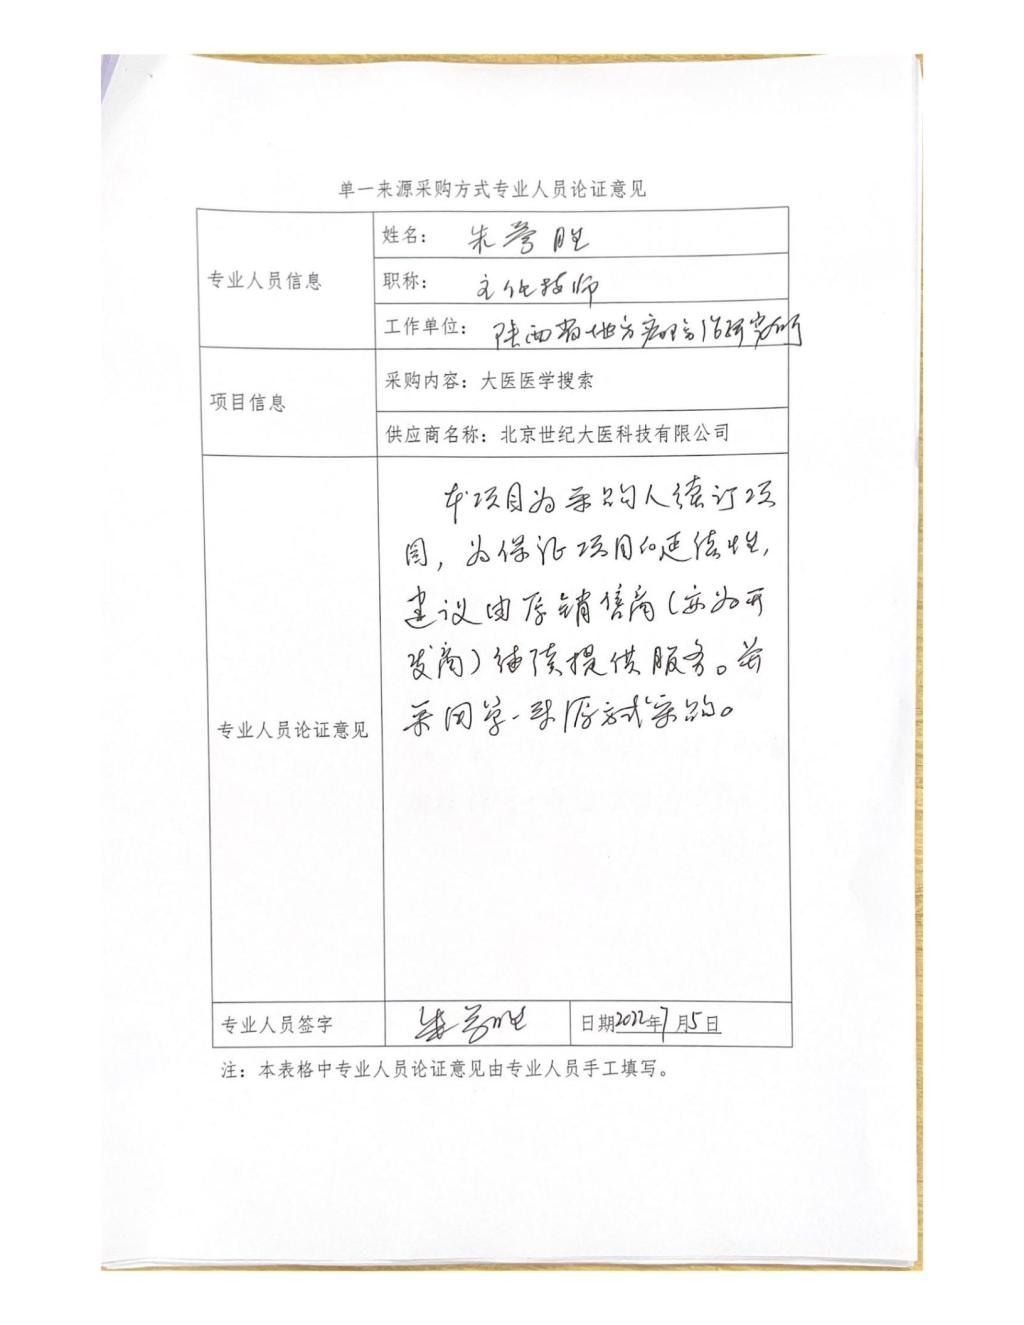 单一来源采购方式专业人员论证意见
专业人员信息
姓名：朱 胜
职称：主任技师
工作单位：陕西省地方病防治研究所
项目信息
采购内容：大医医学搜索
供应商名称：北京世纪大医科技有限公司
专业人员论证意见
本项目为采购人续订项
目，为保证项目的延续性，
建议由原销售商（亦为开
发商）继续提供服务。并
采用单一来源方式采购。
专业人员签字
日期2022年7月5日
注：本表格中专业人员论证意见由专业人员手工填写。